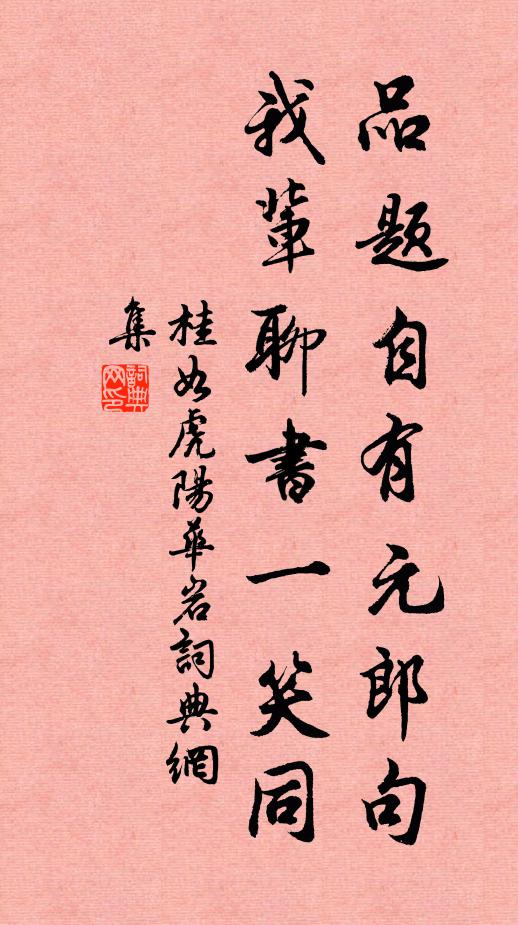 品题自有元郎句
我輩聊書一笑同
桂如虎陽華岩詞典網
集
詞典
网印